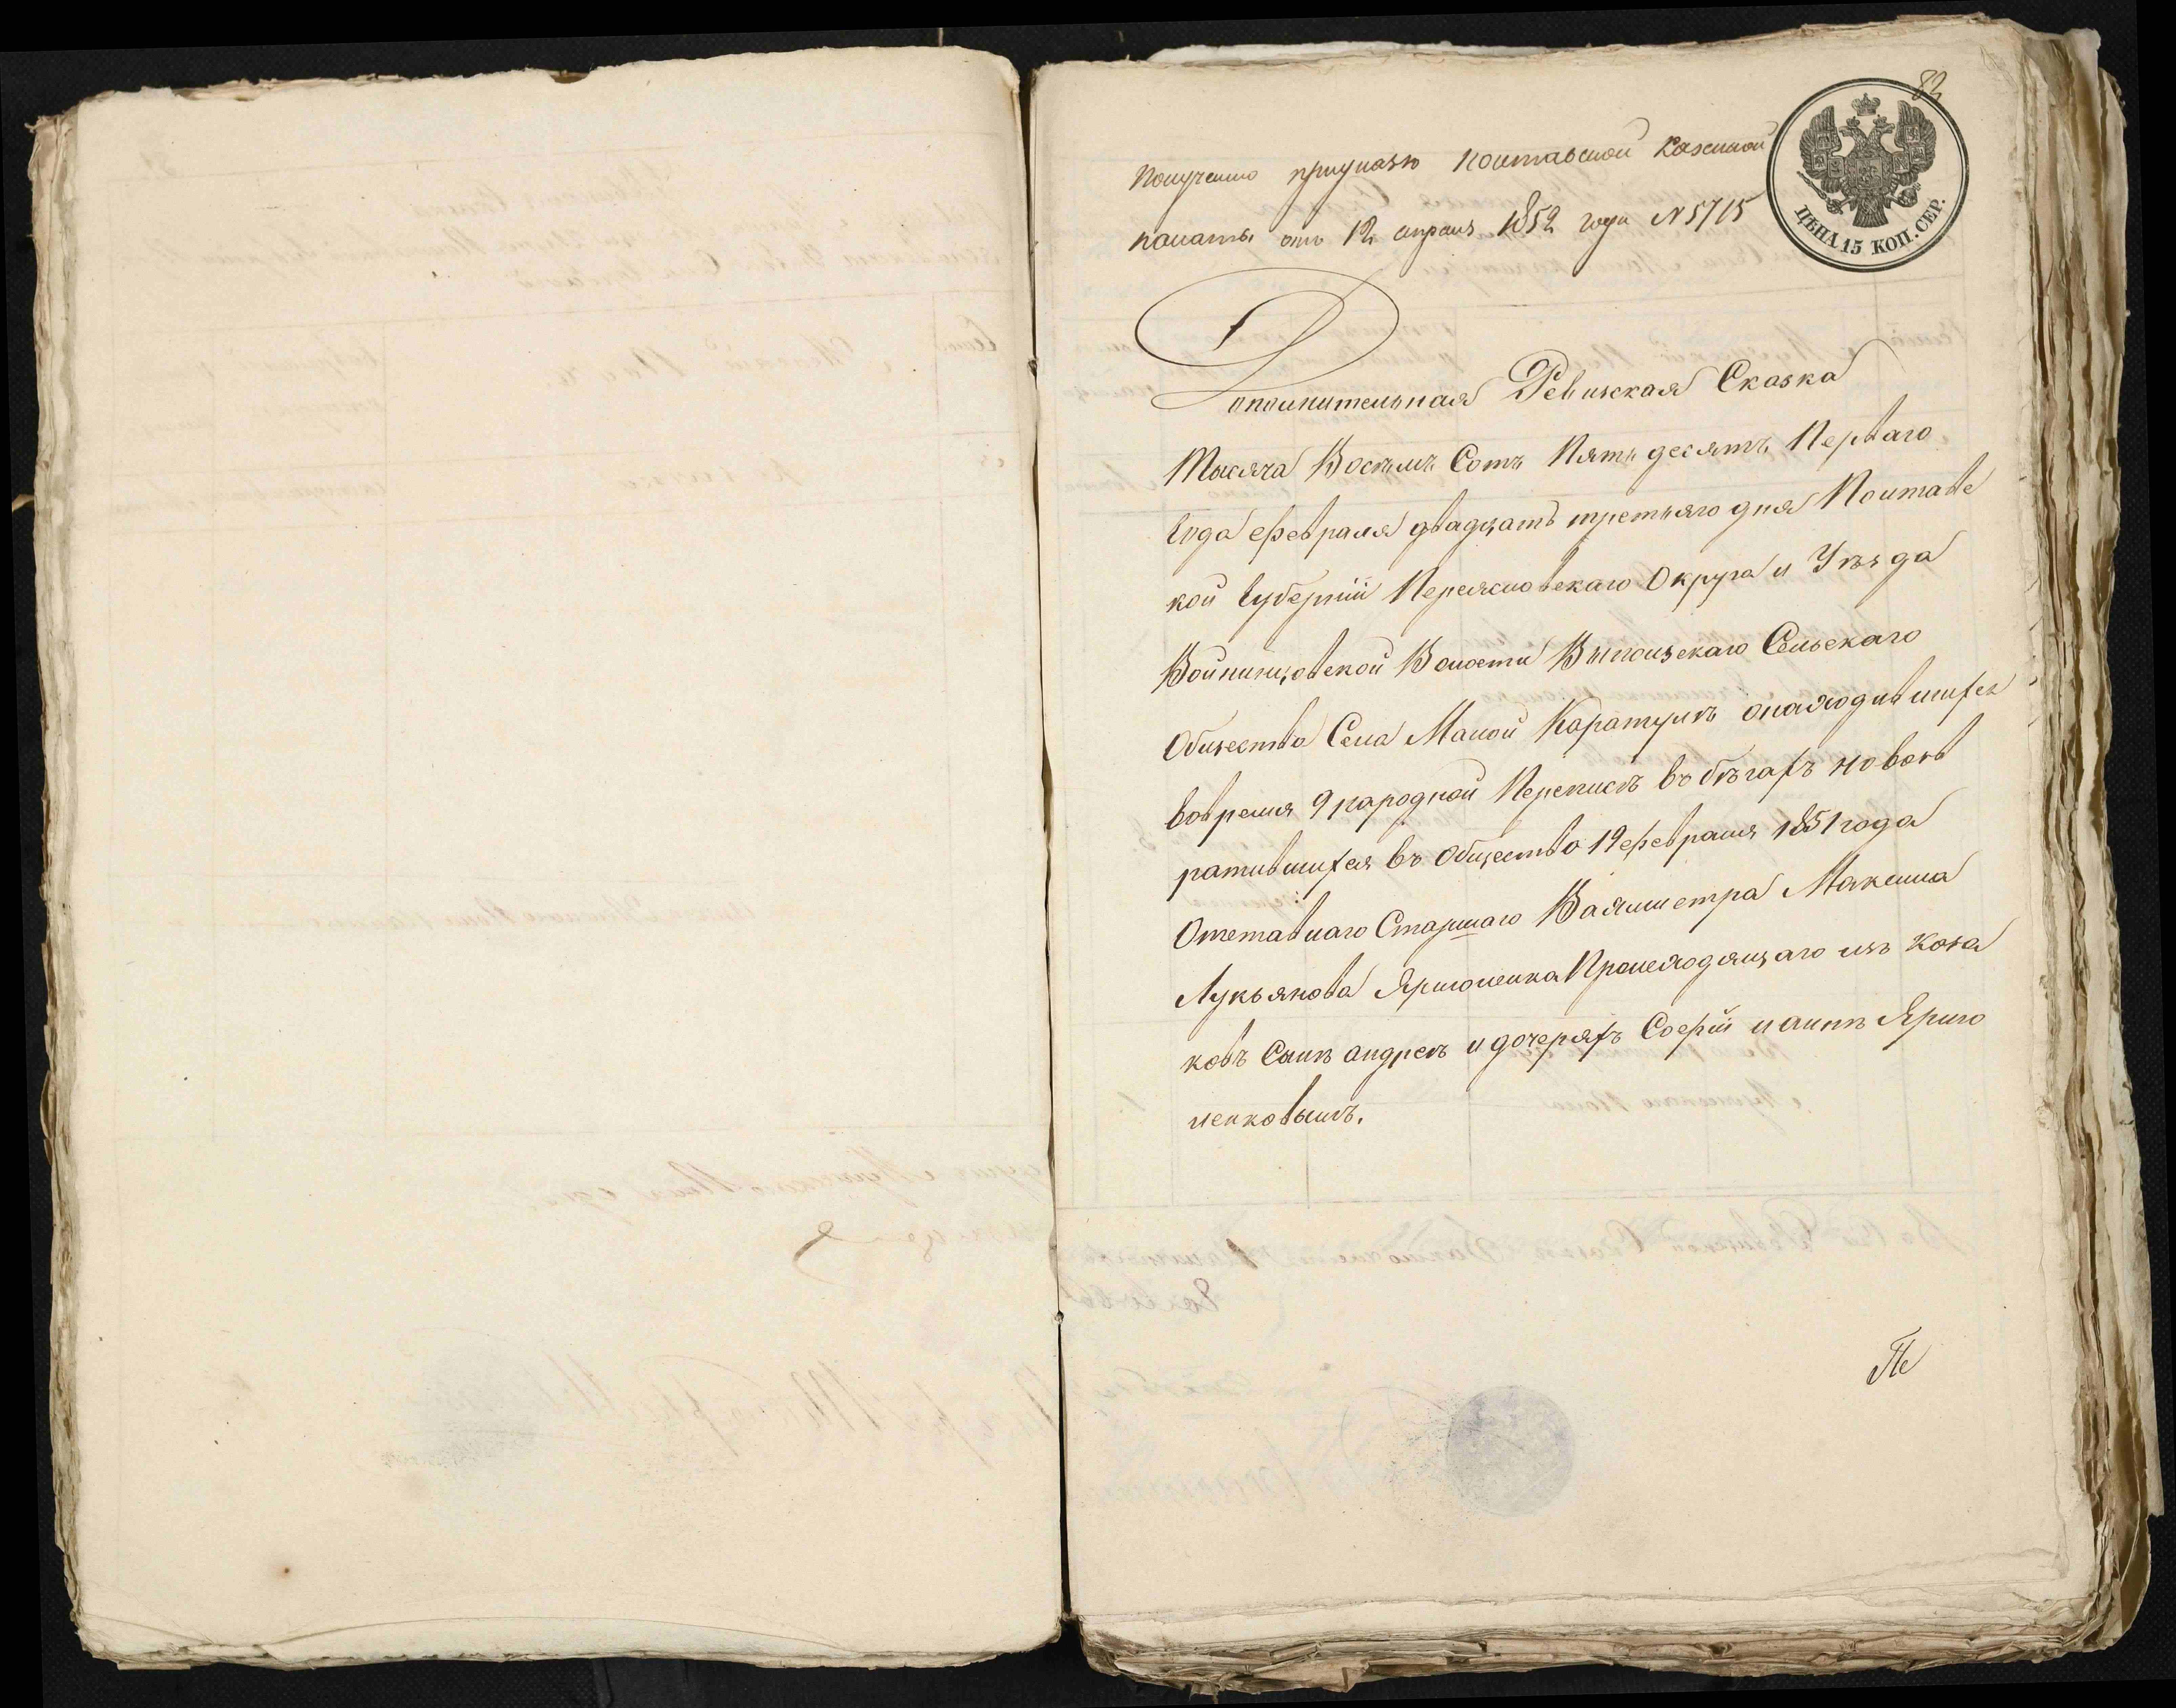 82
Полученно приуказѣ Полтавской Казенной
палаты отъ 12 апрѣля 1852 года N 5715
ЦѢНА 15 КОП. СЕР.
Дополнительная Ревизская Сказка
Тысяча Восемъ Сотъ Пять десятъ Перваго
Года февраля двадцать третьяго дня Полтавс
кой Губернiи Переясловскаго Округа и Уѣзда
Войнинцовской Волости Выползскаго Сельскаго
Общества Села Малой Каратулѣ онаходившихся
вовремя 9 народной Переписѣ въ бѣгахъ ново
ратившихся въ Общество 19 февраля 1851 года
Отставнаго Старшаго Вахмистра Максима
Лукьянова Ярмоленка Происходящаго изъ Коза
ковъ Сынѣ андреѣ и дочеряхъ Софiи и аннѣ Ярмо
ленковымъ.
Пе